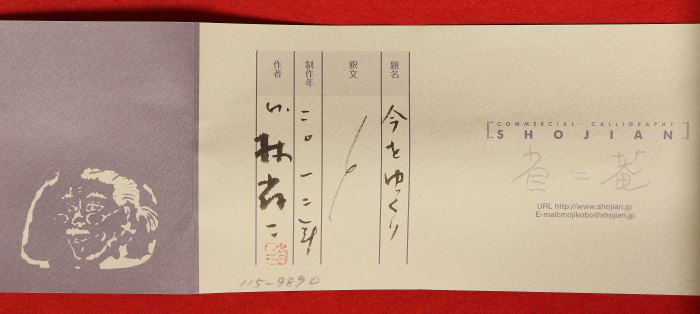 題名
今をゆっくり
釈文
制作年
二〇一二年
作者
小林省二
COMMERCIAL- CALLIGRAPHY
SHOJIAN
省二菴
URL http://www.shojian.jp
E-mail:mojikobo@shojian.jp
115-9890